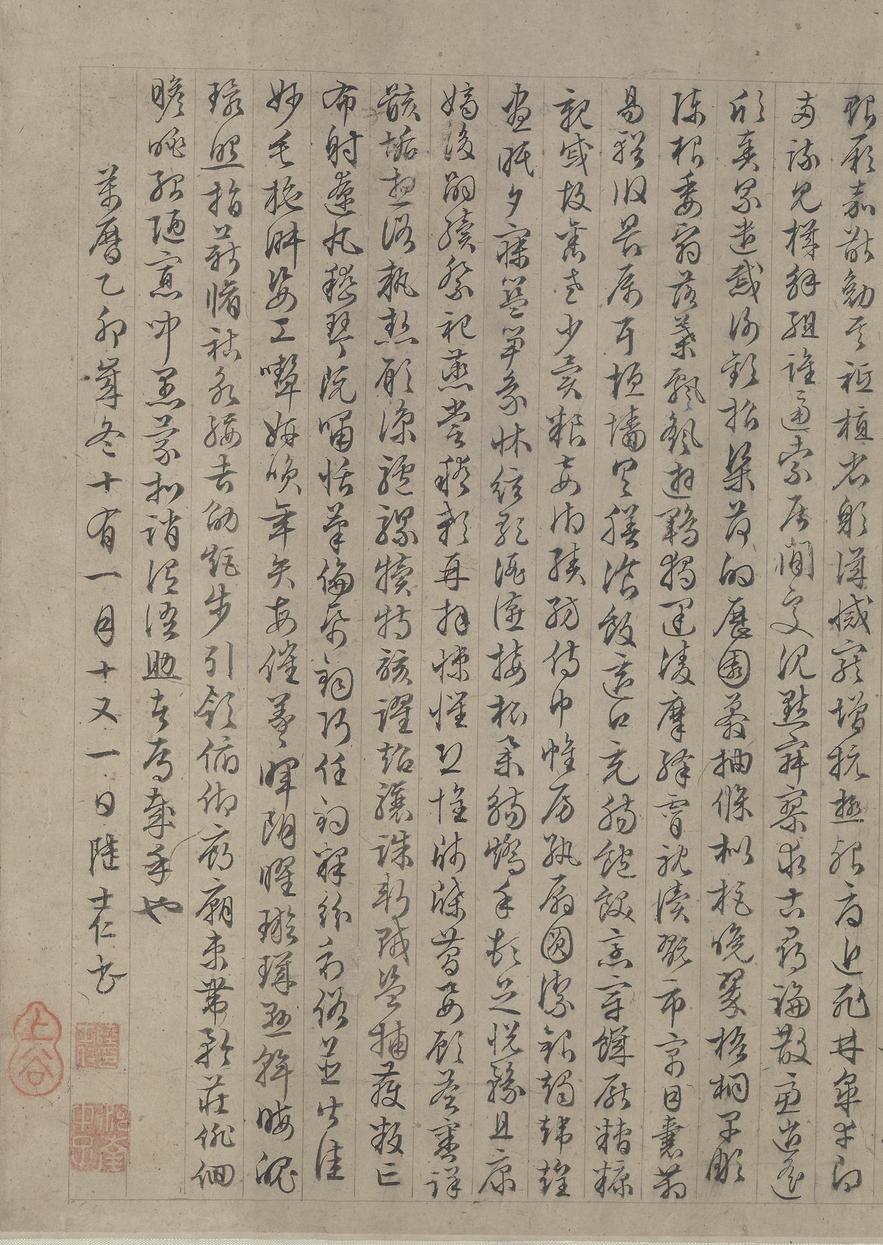 貽厥嘉猷勉其祗植省躬譏誡寵增抗極殆辱近恥林皋幸即
兩疏見機解組誰逼索居閒處沉默寂寥求古尋論散慮逍遙
欣奏累遣慼謝歡招渠荷的歷園莽抽條枇杷晚翠梧桐早彫
陳根委翳落葉飄颻遊鵾獨運凌摩絳霄耽讀翫市寓目囊箱
易輶攸畏屬耳垣墻具膳飡飯適口充腸飽飫烹宰饑厭糟糠
親戚故舊老少異糧妾御績紡侍巾帷房紈扇圓潔銀燭煒煌
晝眠夕寐籃筍象床絃歌酒讌接杯舉觴矯手頓足悅豫且康
嫡後嗣續祭祀蒸嘗稽顙再拜悚懼恐惶牋牒簡要顧答審詳
骸垢想浴執熱願涼驢騾犢特駭躍超驤誅斬賊盜捕獲叛亡
布射遼丸嵇琴阮嘯恬筆倫紙鈞巧任釣釋紛利俗並皆佳
妙毛施淑姿工嚬妍笑年矢每催羲暉朗曜璇璣懸斡晦魄
環照指薪脩祜永綏吉劭矩步引領俯仰廊廟束帶矜莊徘徊
瞻眺孤陋寡聞愚蒙等誚謂語助者焉哉乎也
萬曆乙卯歲冬十有一月十又一日陸士仁書
上谷